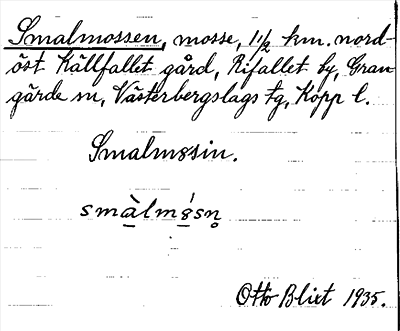 Smalmossen, mosse, 1 1/2 km. nord-
öst Källfallet gård, Rifallet by, Gran-
gärde sn, Västerbergslags tg, Kopp l.
Smalmøsin.
smàlmǿsn̥
Otto Blixt 1935.